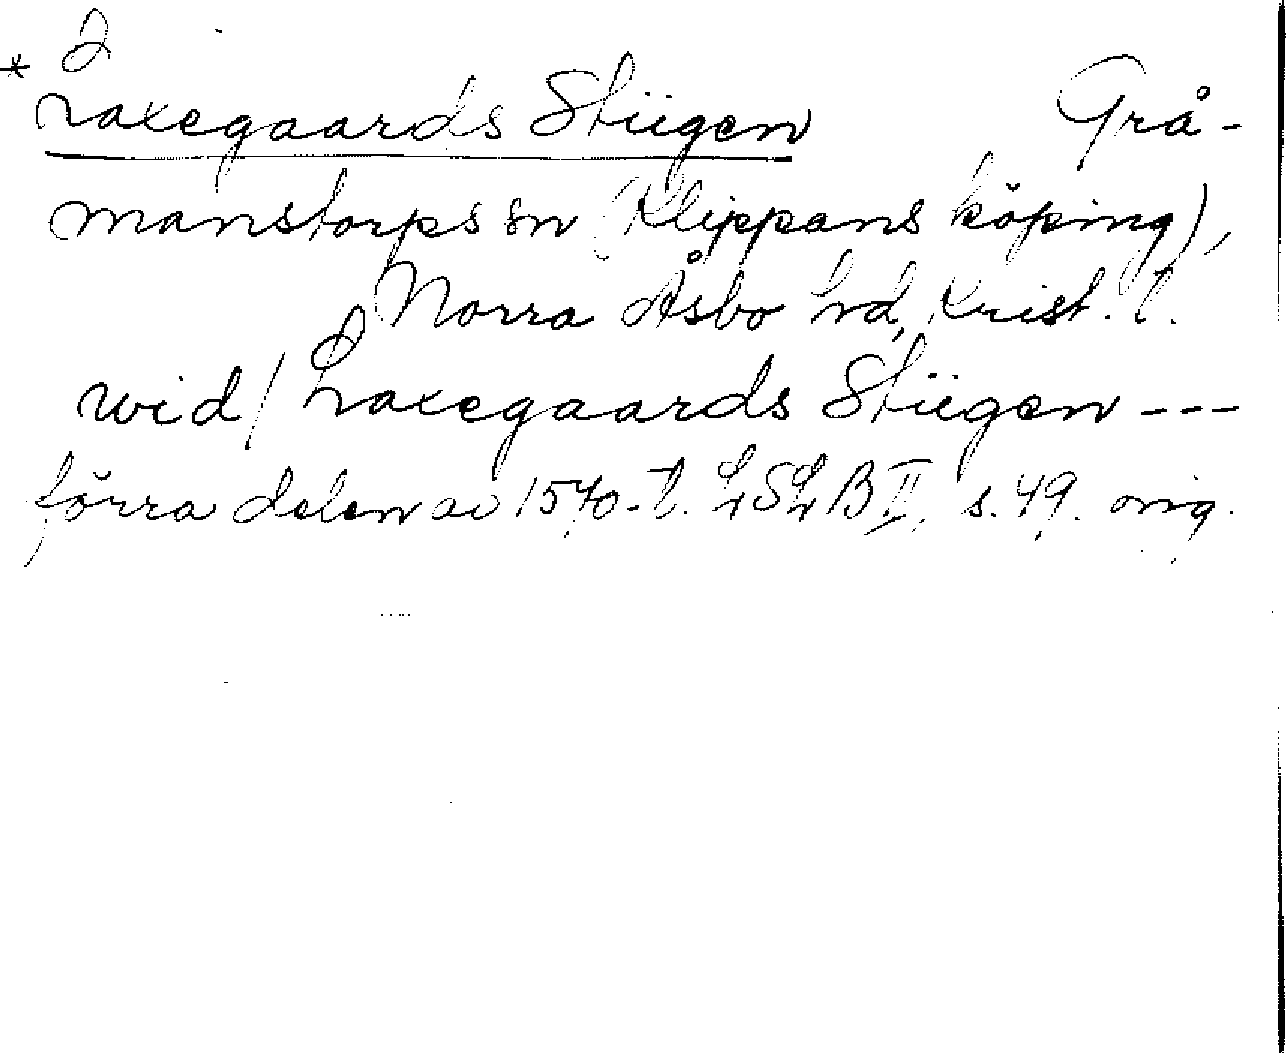 * Laxegaards Stiigen Grå-
manstorps sn (Klippans köping),
Norra Åsbo hd, Krist. l.
wid / Laxegaards Stiigen ---
förra delen av 1570-t. LSLB II, s. 49. orig.